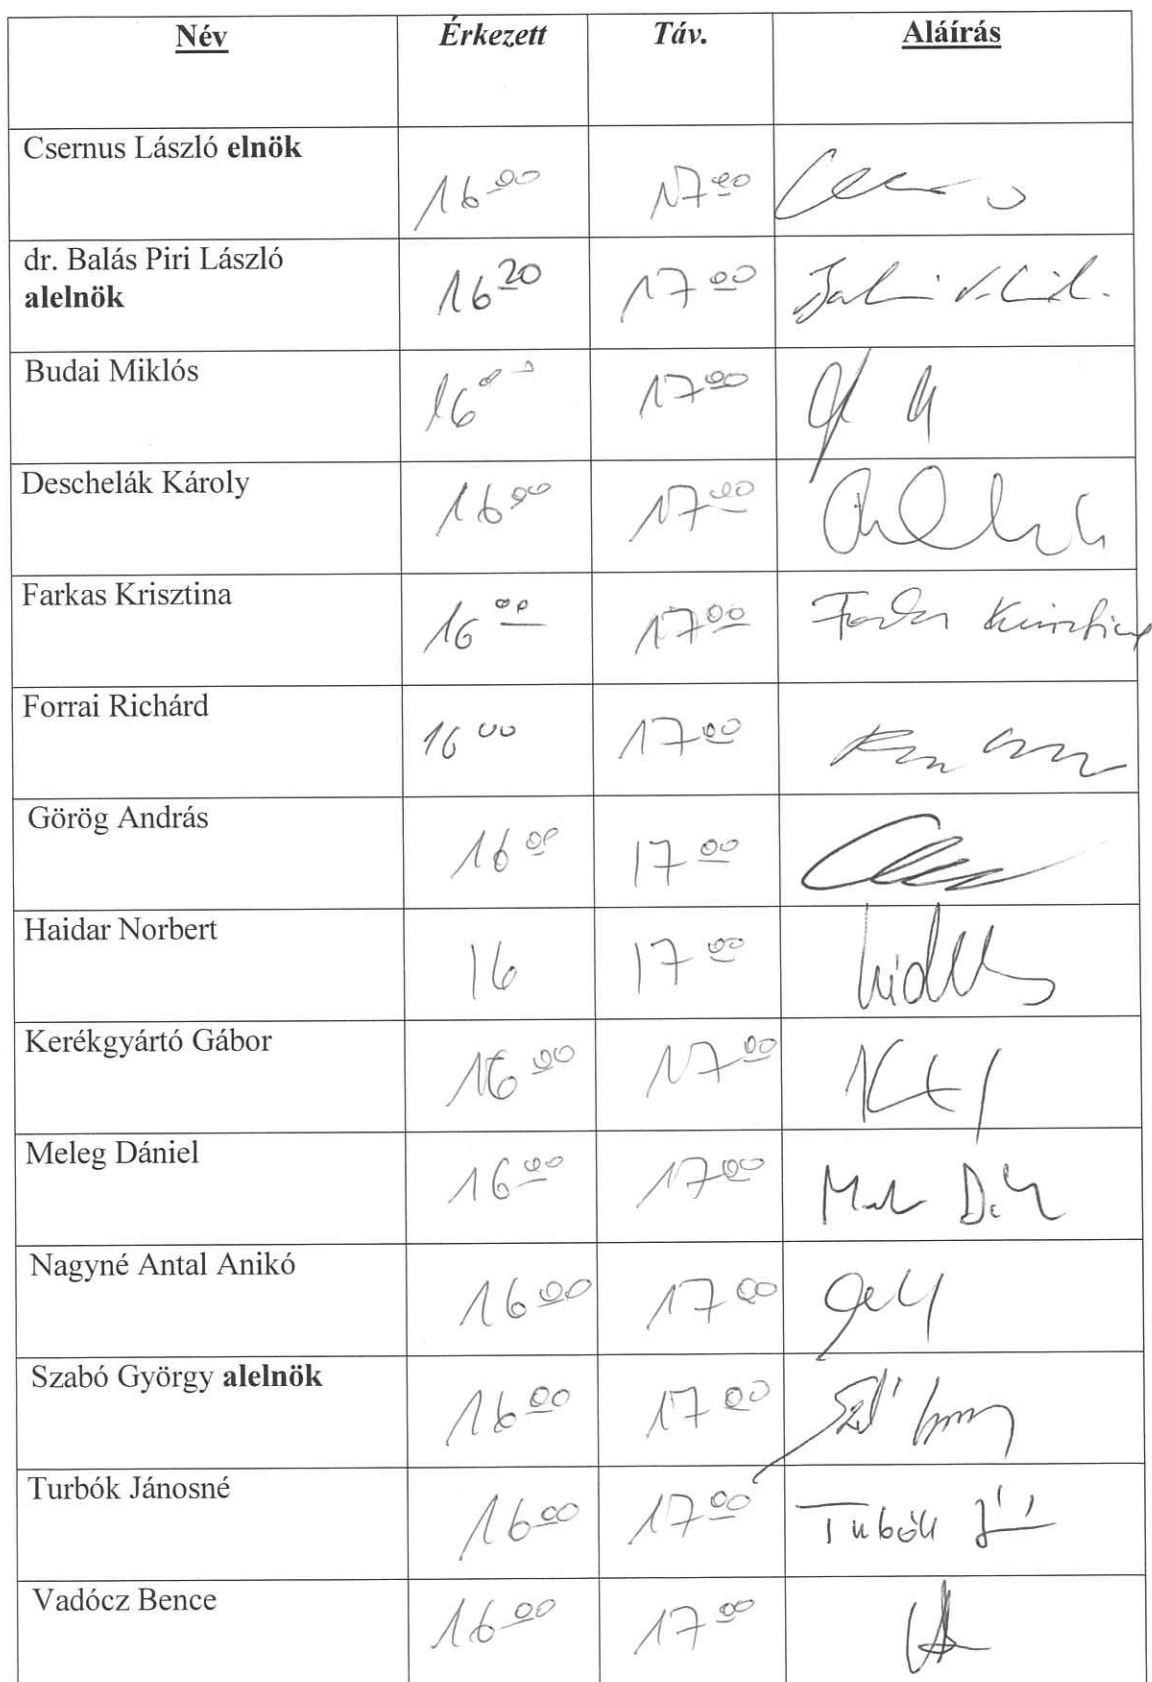 Név Érkezett Táv. Aláírás
Csernus László elnök
16 00 17 00
dr. Balás Piri László
alelnök
16 20 17 00
Budai Miklós
16 00 17 00
Deschelák Károly
16 00 17 00
Farkas Krisztina
16 00 17 00 Farkas Krisztina
Forrai Richárd
16 00 17 00
Görög András
16 00 17 00
Haidar Norbert
16 17 00
Kerékgyártó Gábor
16 00 17 00
Meleg Dániel
16 00 17 00
Nagyné Antal Anikó
16 00 17 00
Szabó György alelnök
16 00 17 00
Turbók Jánosné
16 00 17 00
Vadócz Bence
16 00 17 00